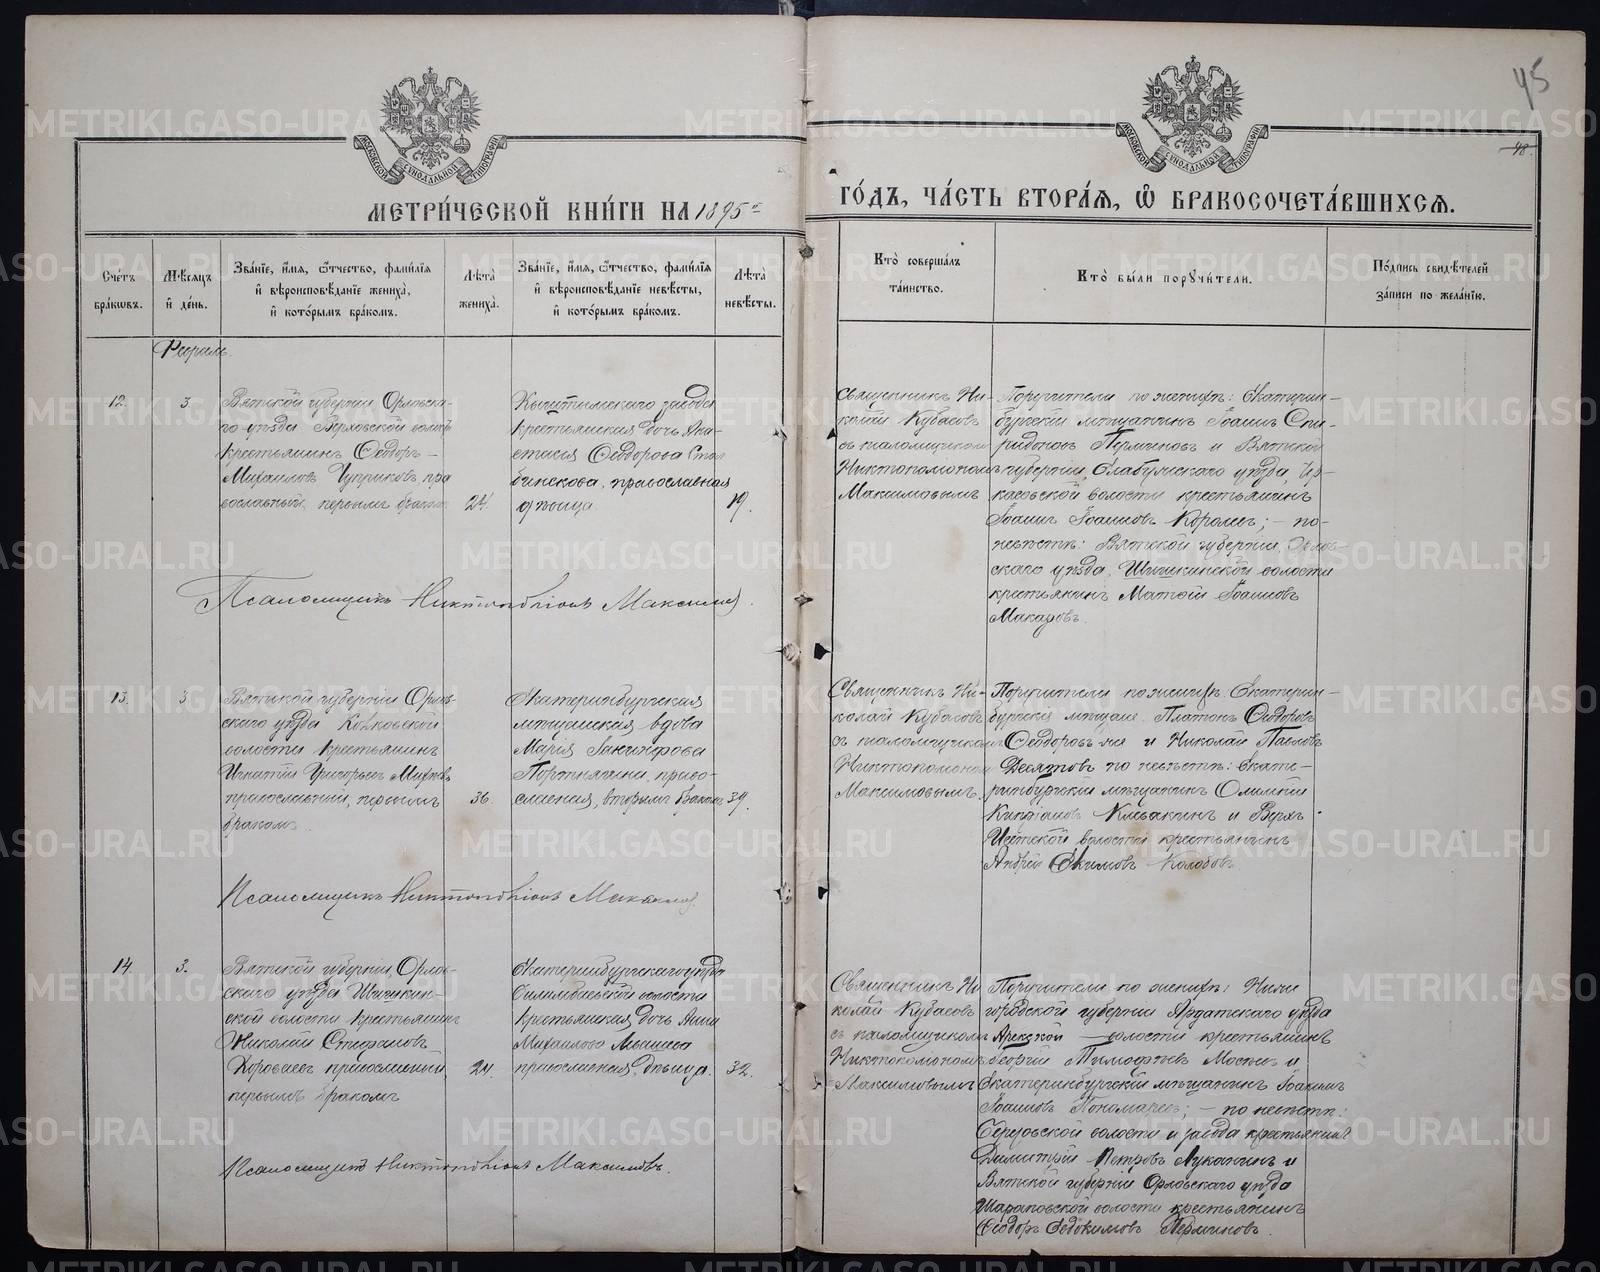 45
48.
МОСКОВСКОЙ СѴНОДАЛЬНОЙ ТИПОГРАФІИ
МОСКОВСКОЙ СѴНОДАЛЬНОЙ ТИПОГРАФІИ
МЕТРИ́ЧЕСКОЙ КНИ́ГИ НА 1895 й
ГО́ДЪ, ЧА́СТЬ ВТОРА́Я, Ѡ҆ БРАКОСОЧЕТА́ВШИХСЯ.
Сче́тъ
бра́кѡвъ.
Мѣ́сяцъ
и҆ де́нь.
Зва́нїе, и҆́мя, ѻ҆́тчество, фами́лїя
и҆ вѣроисповѣ́данїе жениха̀,
и҆ кото́рымъ бра́комъ.
Лѣта̀
жениха̀.
Зва́нїе, и҆́мя, ѻ҆́тчество, фами́лїя
и҆ вѣроисповѣ́данїе невѣ́сты,
и҆ кото́рымъ бра́комъ.
Лѣта̀
невѣ́сты.
Кто̀ соверша́лъ
та́инство.
Кто̀ бы́ли порꙋчи́тели.
По́дпись свидѣ́телей
за́писи по жела́нїю.
Февраль.
12.
3
Вятской губерніи Орловска-
го уѣзда Верховской волос
крестьянинъ Ѳеодоръ
Михаиловъ Чуприковъ пра
вославный, первымъ бракомъ
24.
Кыштымскаго завода
крестьянская дочь Ана-
стасія Ѳеодорова
православная
дѣвица.
19.
Священникъ Ни-
колай Кубасовъ
съ псаломщикомъ
Никтополіономъ
Максимовымъ
Поручители по женихѣ: Екатерин-
бургскій мѣщанинъ Іоаннъ Спи-
ридоновъ Перминовъ и Вятской
губерніи, Елабужскаго уѣзда,
волости крестьянинъ
Іоаннъ Іоанновъ Королевъ; - по
невѣстѣ: Вятской губерніи, Орлов-
скаго уѣзда, Шишкинской волости
крестьянинъ Матѳій Іоанновъ
Макаровъ.
Псаломщикъ Никтополіонъ Максимовъ.
13.
3
Вятской губерніи Орлов-
скаго уѣзда
волости крестьянинъ
Игнатій Григорьевъ
православный, первымъ
бракомъ.
36.
Екатеринбургская
мѣщанская вдова
Марія
Портнягина, право-
славная, вторымъ бракомъ
39.
Священникъ Ни-
колай Кубасовъ
съ псаломщикомъ
Никтополіономъ
Максимовымъ.
Поручители по женихѣ: Екатерин-
бургскіе мѣщане Платонъ Ѳеодоровъ
и Николай Павловъ
Десятовъ по невѣстѣ: Екате-
ринбургскій мѣщанинъ Олимпій
Кипріановъ Клевакинъ и Верхъ-
Исетской волости крестьянинъ
Андрей Екимовъ Колобовъ.
Псаломщикъ Никтополіонъ Максимовъ.
14.
3.
Вятской губерніи, Орлов-
скаго уѣзда Шишкин-
ской волости крестьянинъ
Николай Стефановъ
Короваевъ православный
первымъ бракомъ
24.
Екатеринбургскаго уѣзда
Билимбаевской волости
крестьянская дочь Анна
Михаилова
православная, дѣвица.
32.
Священникъ Ни
колай Кубасовъ
съ псаломщикомъ
Никтополіономъ
Максимовымъ
Поручители по женихѣ: Ниже
городской губерніи Ардатскаго уѣзда
волости крестьянинъ
Георгій Тимофѣевъ и
Екатеринбургскій мѣщанинъ Іоакимъ
Іоанновъ Пономаревъ; - по невѣстѣ:
Березовской волости и завода крестьянинъ
Димитрій Петровъ Луканинъ и
Вятской губерніи Орловскаго уѣзда
Шараповской волости крестьянинъ
Ѳеодоръ Евдокимовъ Перминовъ.
Псаломщикъ Никтополіонъ Максимовъ.
METRIKI.GASO-URAL.RU